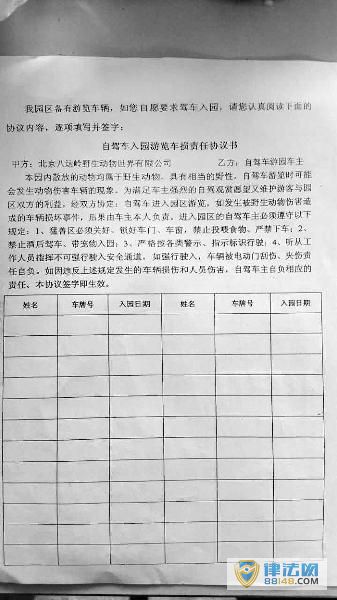 我园区备有游览车辆，如您自愿要求驾车入园，请您认真阅读下面的
协议内容，逐项填写并签字：
自驾车入园游览车损责任协议书
甲方：北京八达岭野生动物世界有限公司 乙方：自驾车游园车主
本园内散放的动物均属于野生动物，具有相当的野性，自驾车游览时可能
会发生动物伤害车辆的现象。为满足车主强烈的自驾观赏愿望又维护游客与园
区双方的利益，经双方协定：自驾车进入园区游览，如发生被野生动物伤害造
成的车辆损坏事件，后果由车主本人负责。进入园区的自驾车主必须遵守以下
规定：1、猛兽区必须关好、锁好车门、车窗，禁止投喂食物，严禁下车；2、
禁止酒后驾车、带宠物入园；3、严格按各类警示、指示标识行驶；4、听从工
作人员指挥不可强行驶入安全通道，如强行驶入，车辆被电动门刮伤、夹伤责
任自负。如因违反上述规定发生的车辆损伤和人员伤害，自驾车主自负相应的
责任。本协议签字即生效。
姓名 车牌号 入园日期 姓名 车牌号 入园日期
律法网
88148.COM